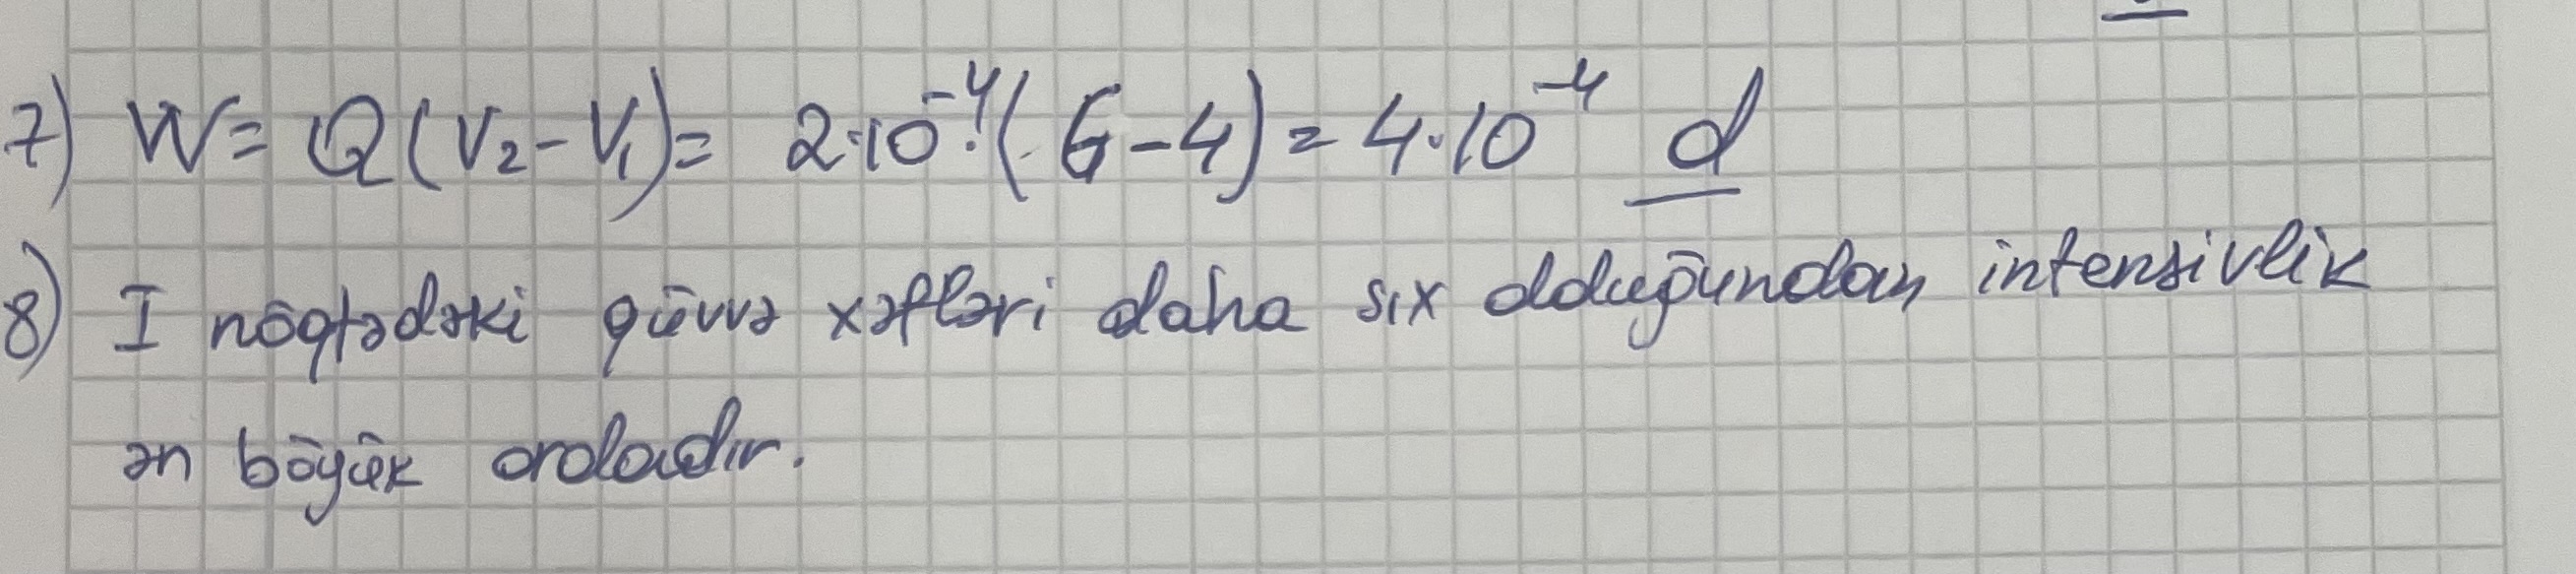 7) W = Q(V₂-V₁) = 2·10⁻⁴·(6-4) = 4·10⁻⁴ d
8) I nöqtədəki qüvvə xətləri daha sıx olduğundan intensivlik
ən böyük oradadır.